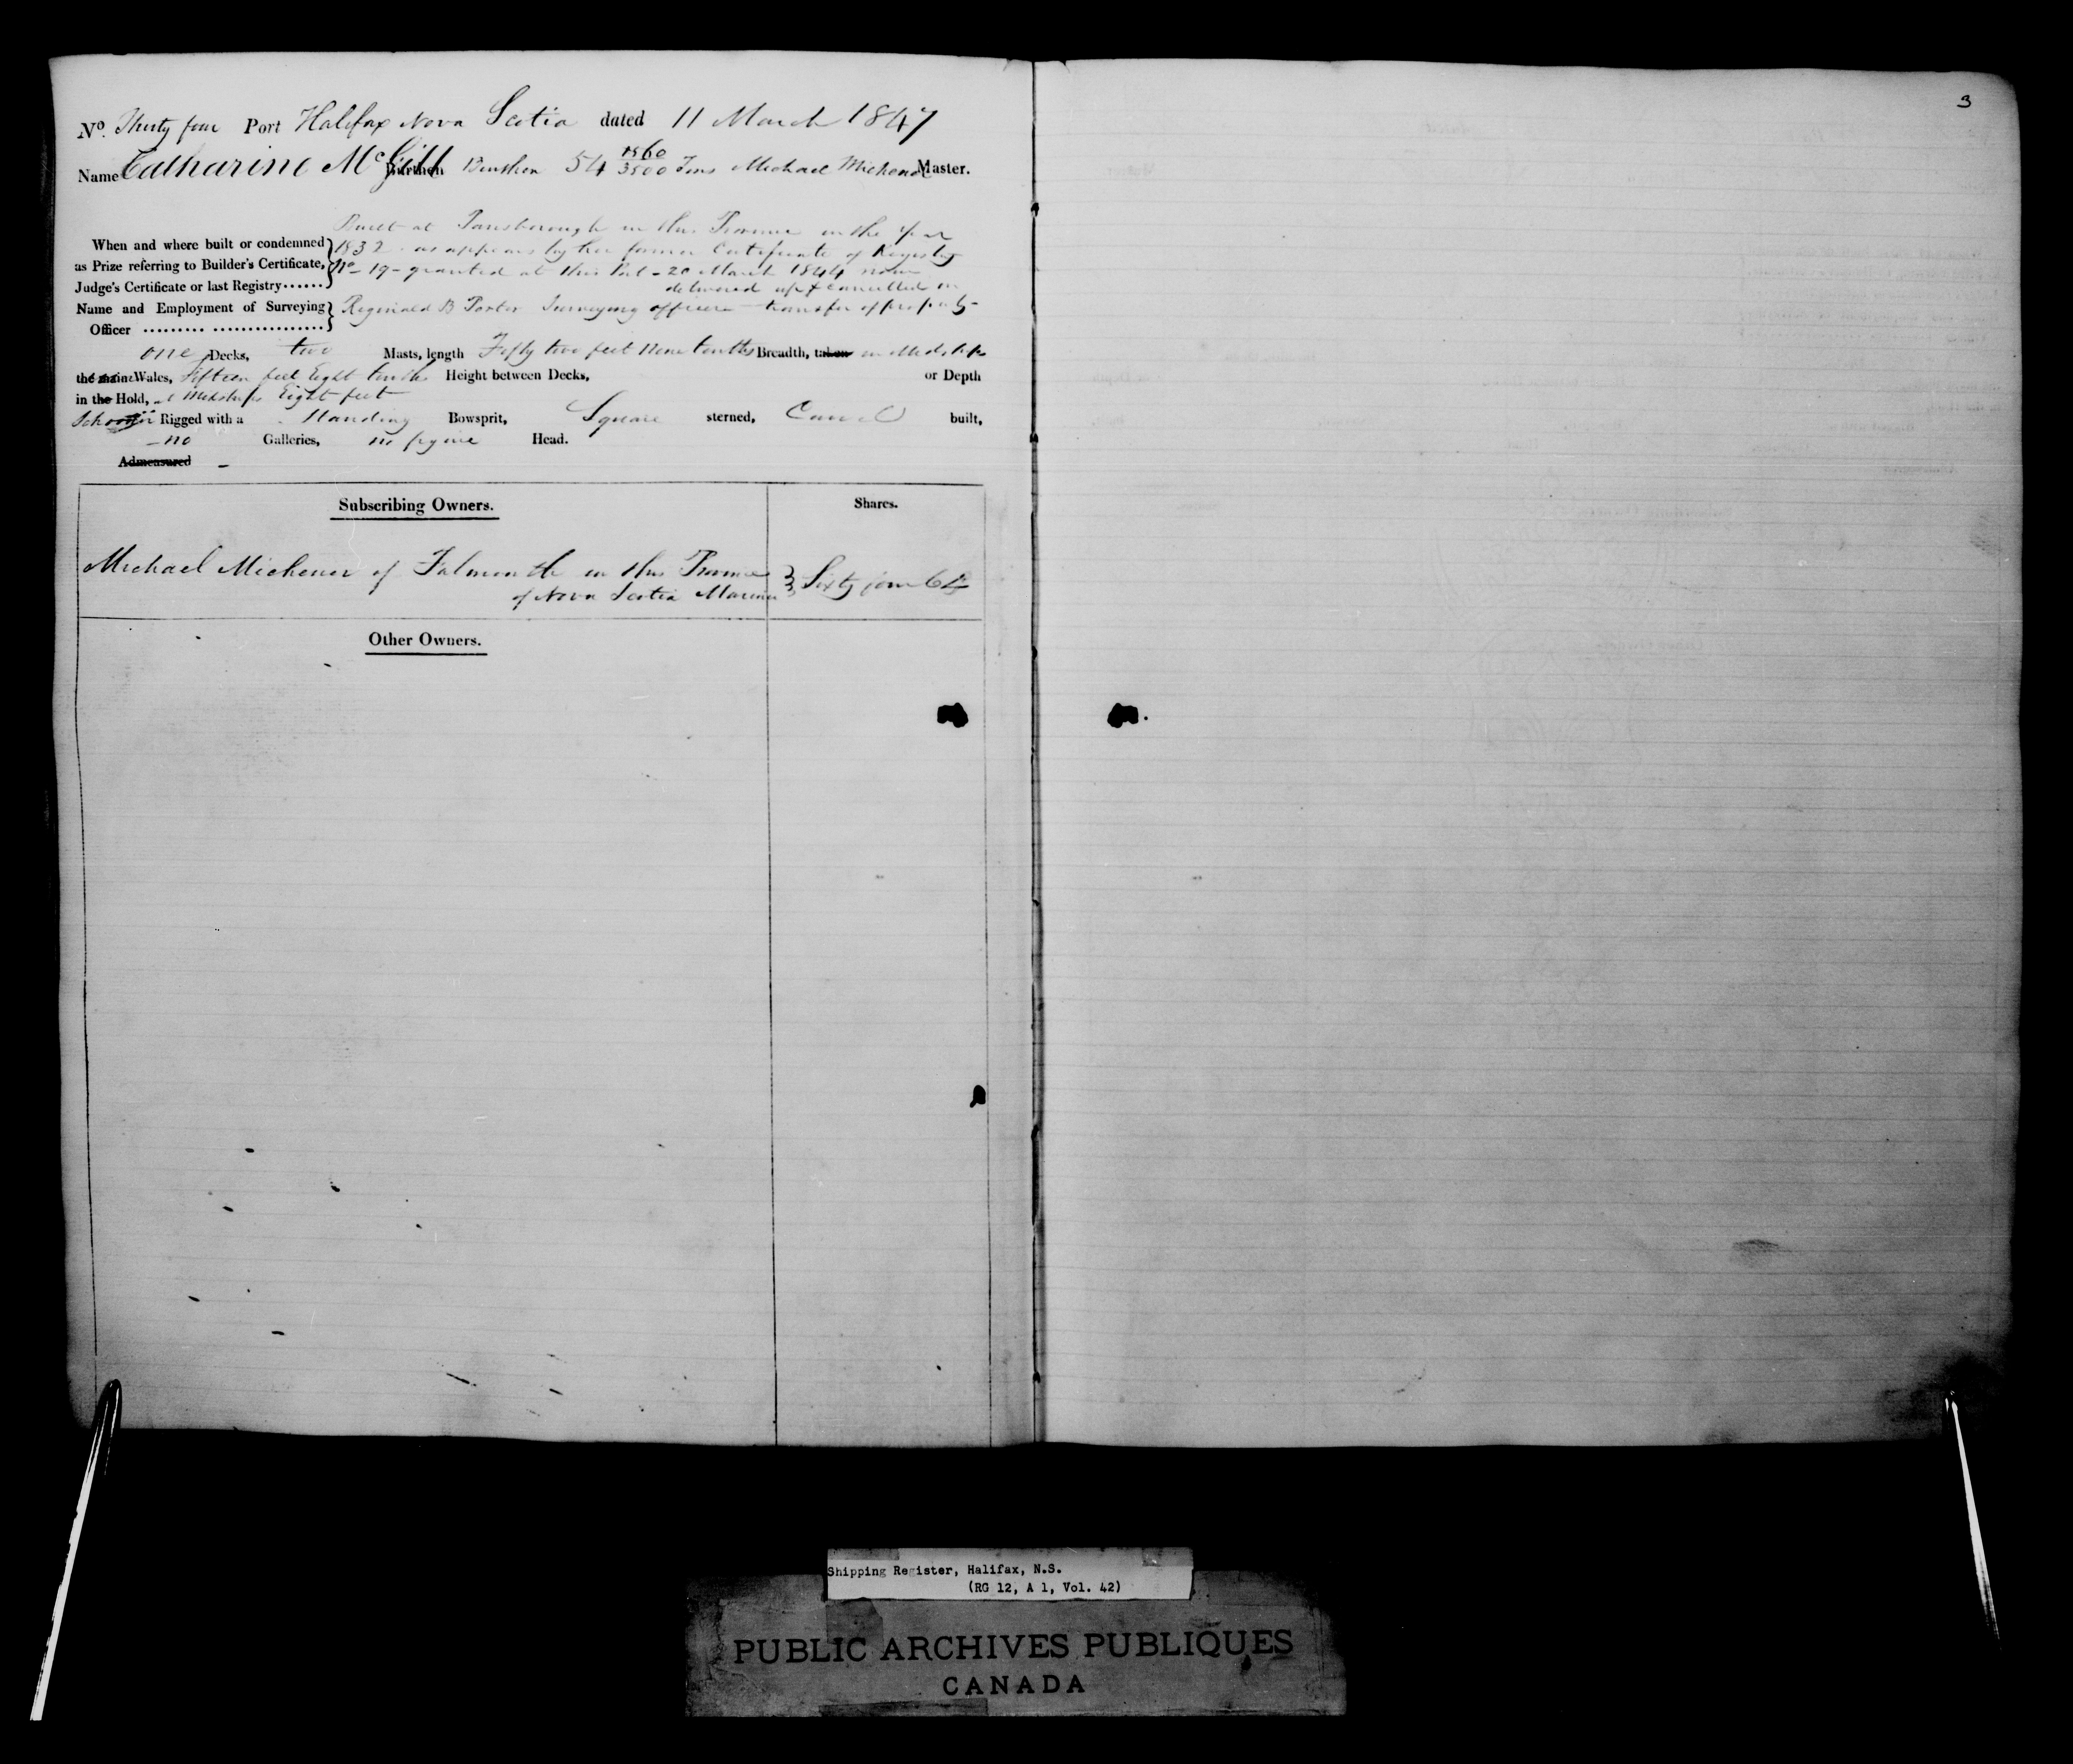 3
No. Thirty four Port Halifax Nova Scotia dated 11 March 1847
Name Catharine McGill Burthen Burthen 54 1560/3500 Tons Michael Michener Master.
Built at Parrsborough in this Province in the Year
When and where built or condemned 1832 - as appears by her former Certificate of Registry
as Prize referring to Builder's Certificate, No - 19 - granted at this Port - 20 March 1844 now
Judge's Certificate or last Registry...... delivered up & cancelled on
Name and Employment of Surveying Reginald B Porter Surveying officer - transfer of property -
Officer ......... ................
one Decks, two Masts, length Fifty two feet Nine tenths Breadth, taken in Midships
the main Wales, fifteen feet Eight tenths Height between Decks, or Depth
in the Hold, at Midships Eight feet
Schooner Rigged with a Standing Bowsprit, Square sterned, Carvel built,
- no Galleries, no figure Head.
Admeasured -
Subscribing Owners. Shares.
Michael Michener of Falmouth in this Province
of Nova Scotia Mariner Sixty four 64
Other Owners.
Shipping Register, Halifax, N.S.
(RG 12, A 1, Vol. 42)
PUBLIC ARCHIVES PUBLIQUES
CANADA